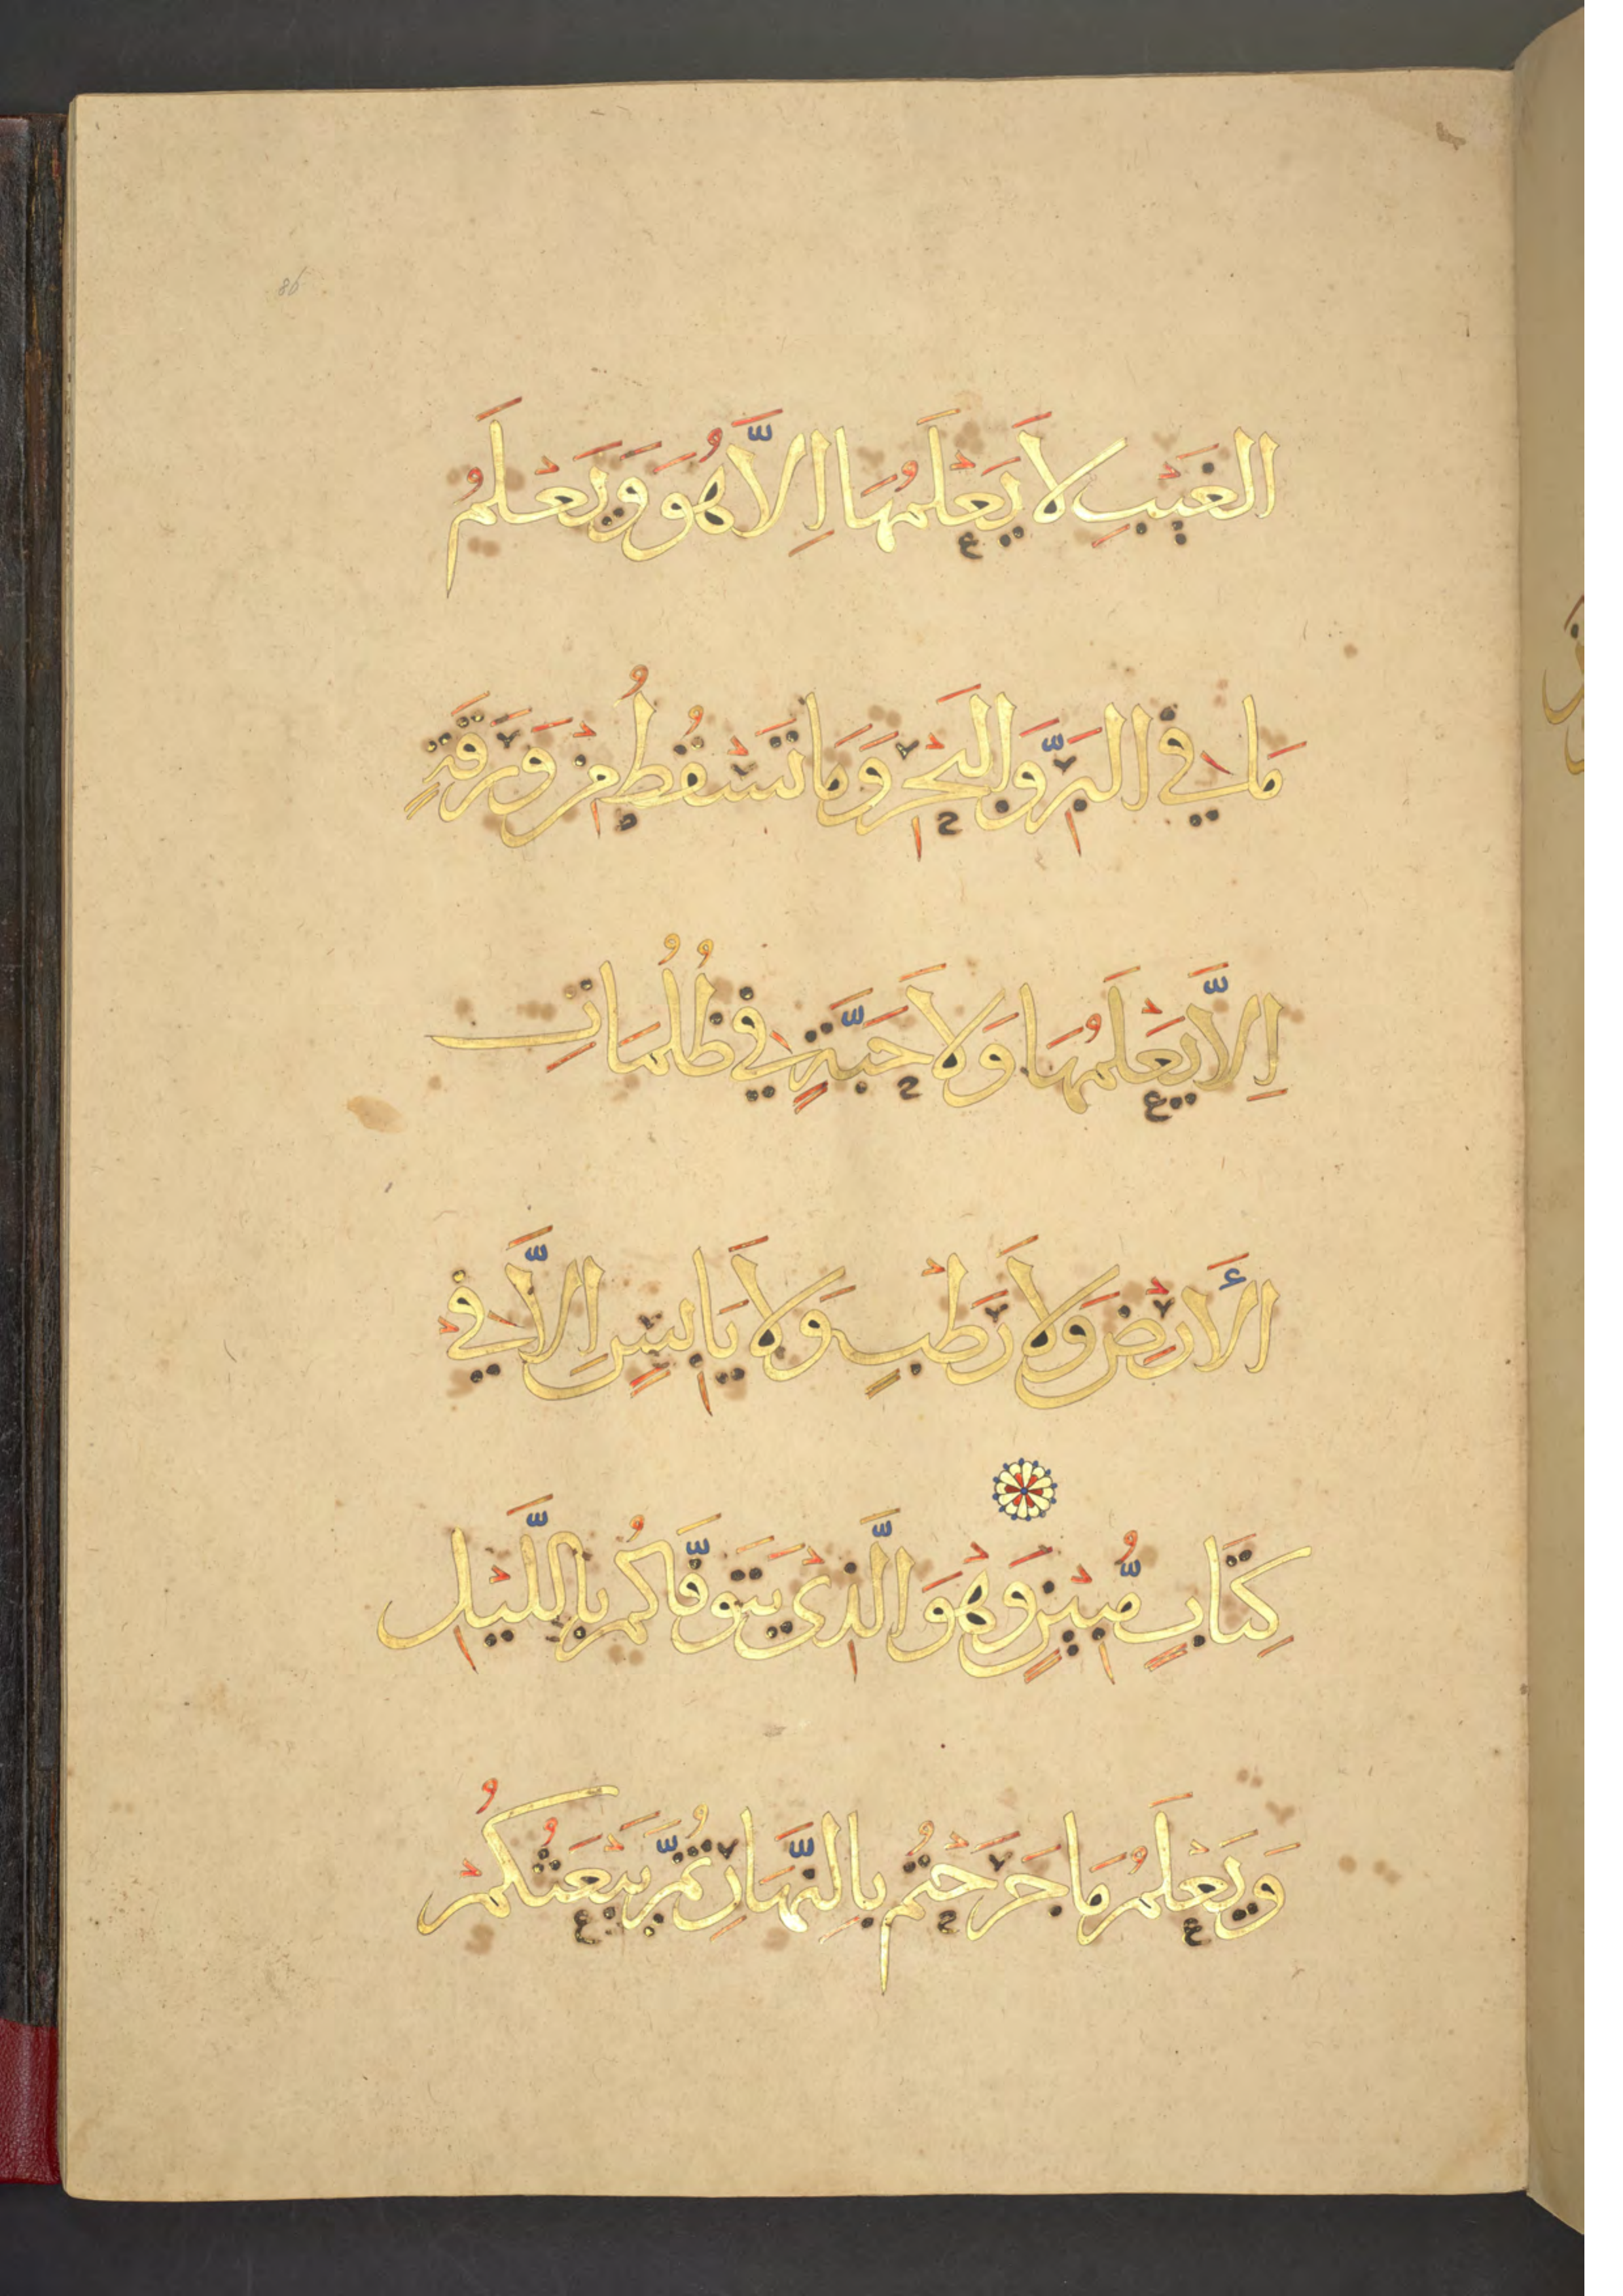 86
الغَيْبِ لَا يَعْلَمُهَا اِلَّا هُوَ وَيَعْلَمُ
مَا فِي البَرِّ وَالبَحْرِ وَمَا تَسْقُطُ مِنْ وَرَقَةٍ
اِلَّا يَعْلَمُهَا وَلَا حَبَّةٍ فِي ظُلُمَاتِ
الأَرْضِ وَلَا رَطْبٍ وَلَا يَابِسٍ اِلَّا فِي
كِتَابٍ مُّبِيْنٍ وَهْوَ الَّذِيْ يَتَوَفَّاكُمْ بِاللَّيْلِ
وَيَعْلَمُ مَا جَرَحْتُمْ بِالنَّهَارِ ثُمَّ يَبْعَثُكُمْ